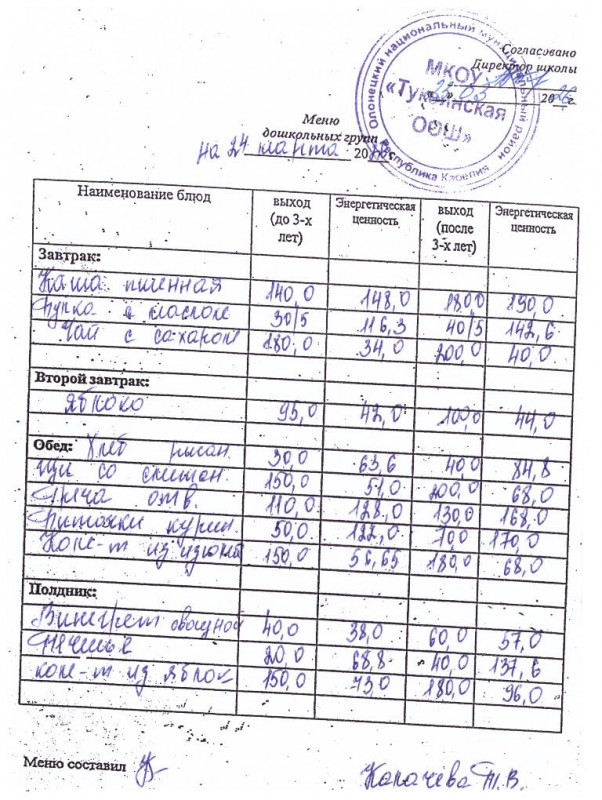 Согласовано
Директор школы
23.03 20 г
Олонецкий национальный муниципальный район
МКОУ
«Туксинская
ООШ»
Республика Карелия
Меню
дошкольных групп
на 24 марта 20 г
Наименование блюд выход (до 3-х лет) Энергетическая ценность выход (после 3-х лет) Энергетическая ценность
Завтрак:
Каша пшенная 140,0 148,0 180,0 190,0
Булка с маслом 30/5 116,3 40/5 142,6
Чай с сахаром 180,0 34,0 200,0 40,0
Второй завтрак:
Яблоко 95,0 42,0 100,0 44,0
Обед: Хлеб ржан. 30,0 63,6 40,0 84,8
Щи со сметан. 150,0 51,0 200,0 68,0
Греча отв. 110,0 128,0 130,0 168,0
Биточки курин. 50,0 122,0 70,0 170,0
Комп-т из изюма 150,0 56,65 180,0 68,0
Полдник:
Винегрет овощной 40,0 38,0 60,0 57,0
Печенье 20,0 68,8 40,0 137,6
Комп-т из яблок 150,0 73,0 180,0 96,0
Меню составил
Капачева Т.В.